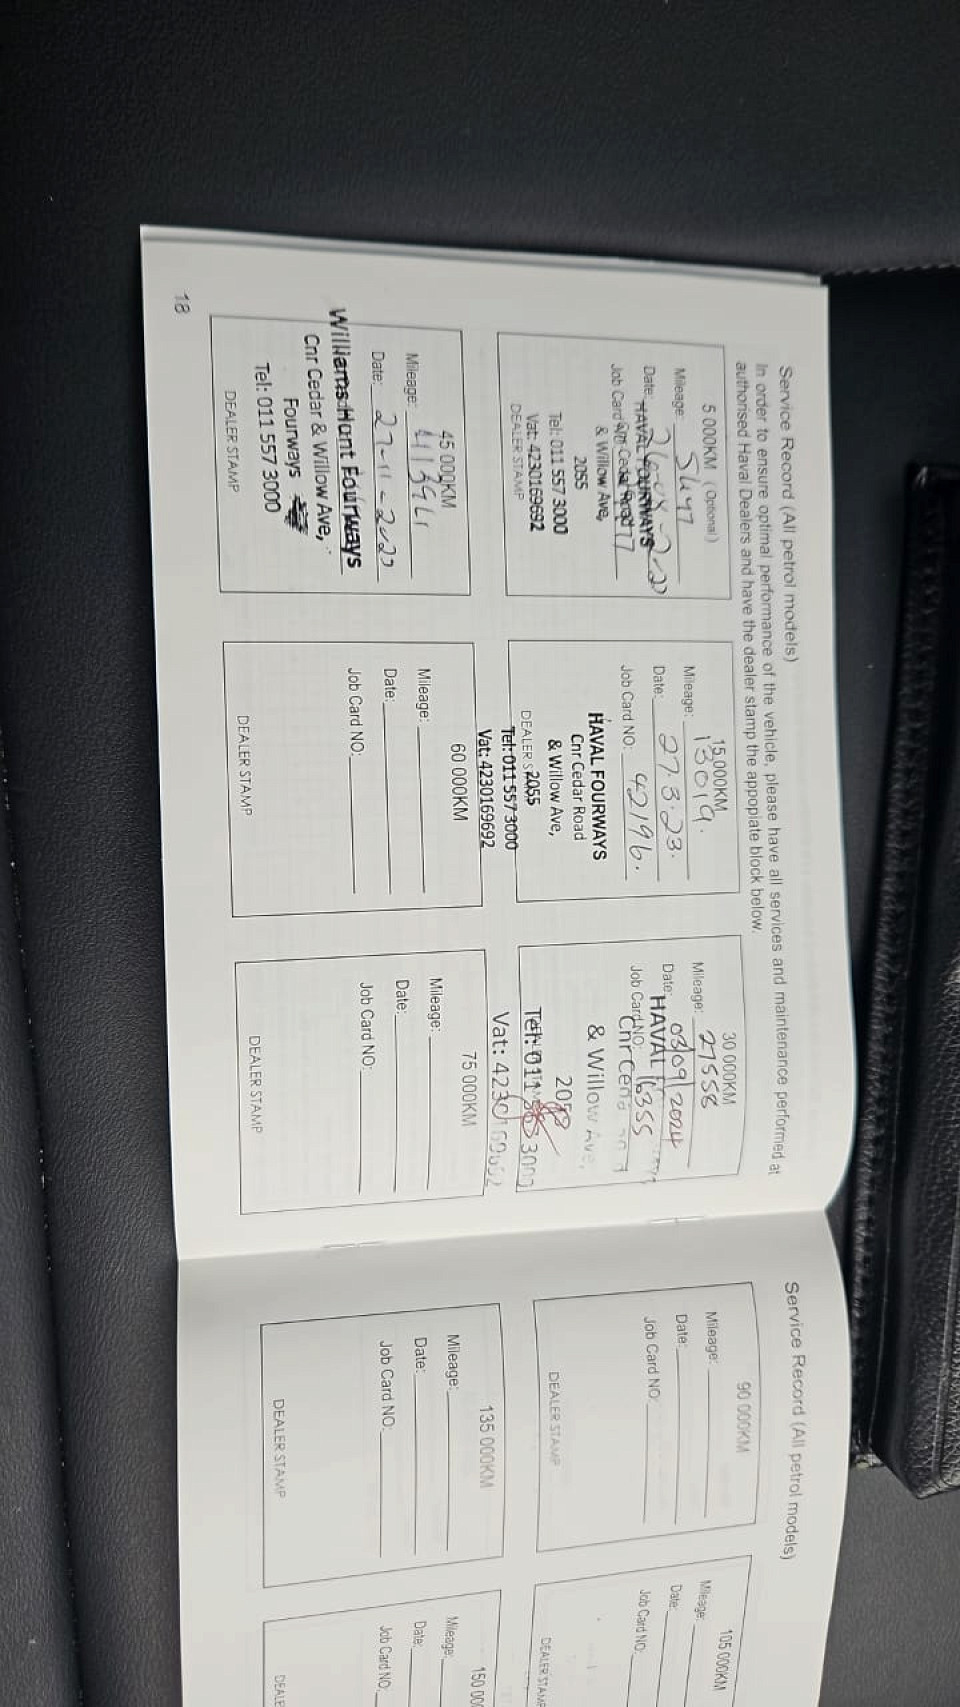 Service Record (All petrol models)
In order to ensure optimal performance of the vehicle, please have all services and maintenance performed at
authorised Haval Dealers and have the dealer stamp the appopiate block below.
5 000KM (Optional)
Mileage:
Date:
HAVAL FOURWAYS
Job Card
& Willow Ave,
2055
Tel: 011 557 3000
Vat: 4230169692
DEALER STAMP
15 000KM
Mileage: 13019.
Date: 27.3.23.
Job Card NO: 42196.
HAVAL FOURWAYS
Cnr Cedar Road
& Willow Ave,
2055
DEALER
Tel: 011 557 3000
Vat: 4230169692
30 000KM
Mileage: 27558
Date: 03/09/2024
HAVAL
Job Card NO: 16355
& Willow Ave,
Tel: 011 3000
Vat: 4230169692
45 000KM
Mileage:
Date: 27-11-2
Williams Hunt Fourways
Cnr Cedar & Willow Ave,
Fourways
Tel: 011 557 3000
DEALER STAMP
60 000KM
Mileage:
Date:
Job Card NO:
DEALER STAMP
75 000KM
Mileage:
Date:
Job Card NO:
DEALER STAMP
18
Service Record (All petrol models)
90 000KM
Mileage:
Date:
Job Card NO:
DEALER STAMP
105 000KM
Mileage:
Date:
Job Card NO:
DEALER STAMP
135 000KM
Mileage:
Date:
Job Card NO:
DEALER STAMP
150 000
Mileage:
Date:
Job Card NO:
DEALE